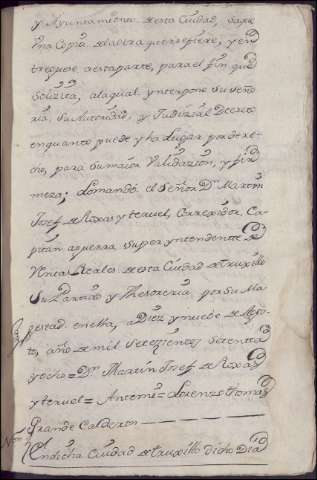 y Ayuntamiento de esta Ciudad, saque
una Copia de la otra que refiere, y en
treguese a esta parte, para el fin que
Solizita, a la qual ynterpone su Seño
ria, Su Autoridad, y Judizial Decreto
en quanto puede y ha lugar por dere
cho, para su maior Validazion, y fir
meza; lo mandó el Señor Dn. Martin
Josef de Roxas y teruel, Correxidor, Ca
pitan aguerra, Super yntendente de
Rentas Reales de esta Ciudad de truxillo
Su Partido y Thesoreria, por Su Ma
gestad en ella, a Diez y nuebe de Agos
to, año de mil Setezientos Setenta
y ocho = Dn. Martin Josef de Roxas
y teruel = Antemi = Lorenzo thomas
Grande Calderon
En dicha Ciudad de truxillo dicho Dia